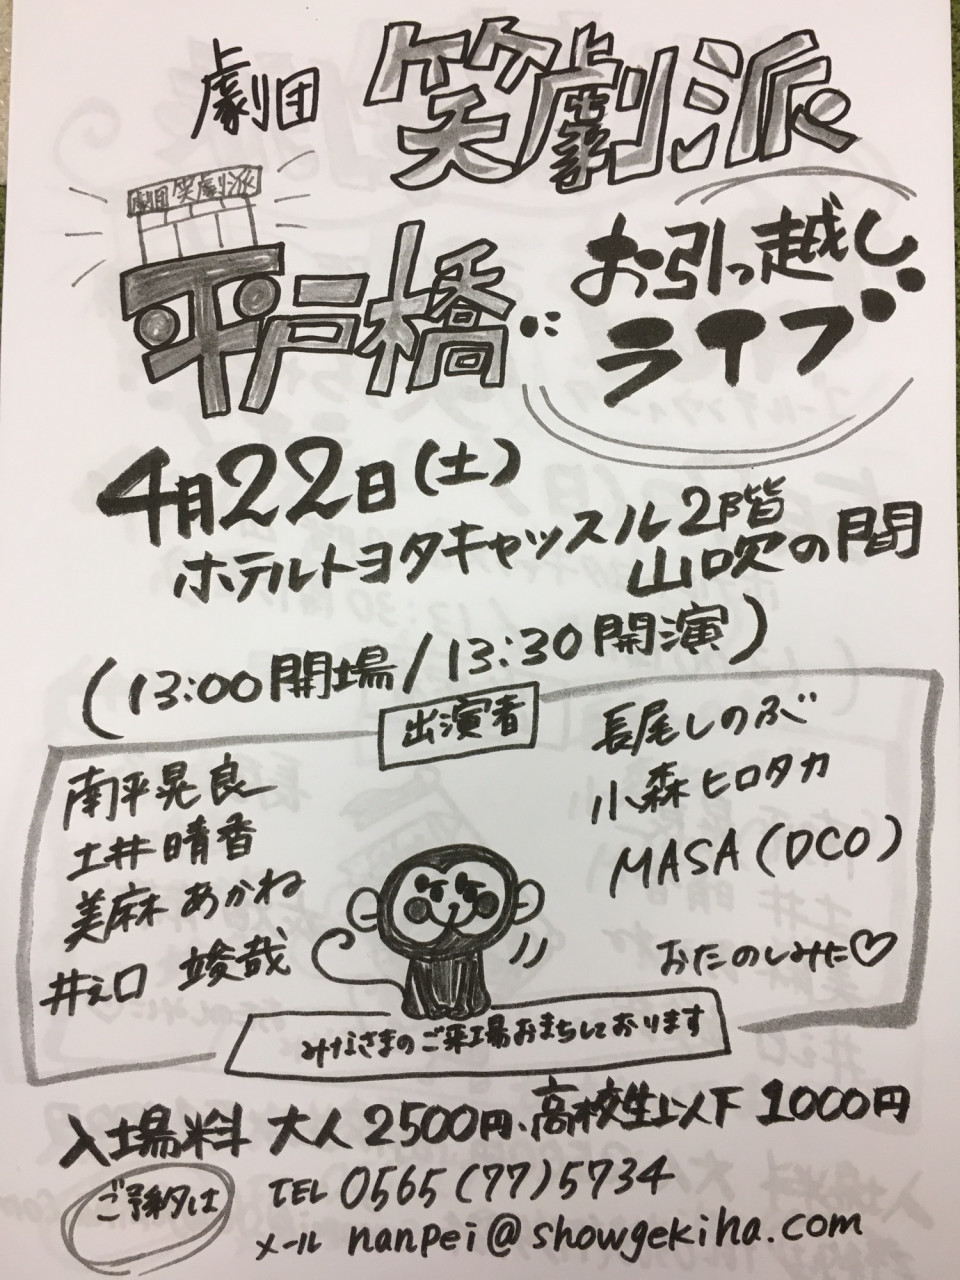 劇団 笑劇派
劇団 笑劇派
平戸橋
お引っ越し
ライブ
4月22日(土)
ホテルトヨタキャッスル2階
山吹の間
(13:00開場/13:30開演)
出演者
南平晃良
土井晴香
美麻あかね
井ェ口 竣哉
長尾しのぶ
小森ヒロタカ
MASA(DCO)
おたのしみに♡
みなさまのご来場おまちしております
入場料 大人2500円、高校生以下1000円
ご予約は
TEL 0565(77)5734
メール nanpei@showgekiha.com